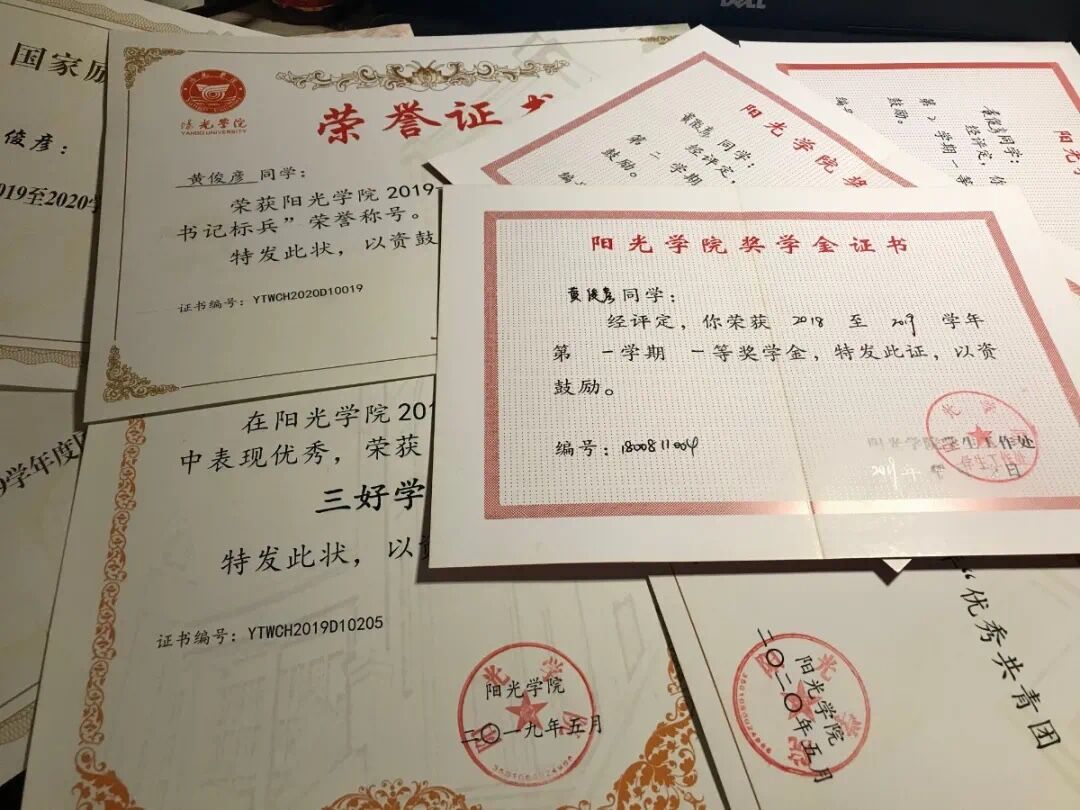 DELL
国家励
俊彦：
2019至2020学
阳光学院
YANGO UNIVERSITY
荣誉证书
黄俊彦 同学：
荣获阳光学院 2019
书记标兵”荣誉称号。
特发此状，以资鼓
证书编号：YTWCH2020D10019
阳光学院奖
黄俊彦同学：
经评定，
第 二 学期
鼓励。
编号
阳光学
黄俊彦同学：
经评定，你
学期 一等
鼓励。
编号
阳光学院奖学金证书
黄俊彦同学：
经评定，你荣获 2018 至 2019 学年
第 一学期 一等奖学金，特发此证，以资
鼓励。
编号：1800811004
阳光学院学生工作处
日
9学年度
在阳光学院 201
中表现优秀，荣获
三好学
特发此状，以资
证书编号：YTWCH2019D10205
阳光学院
二〇一九年五月
“优秀共青团
阳光学院
二〇二〇年五月